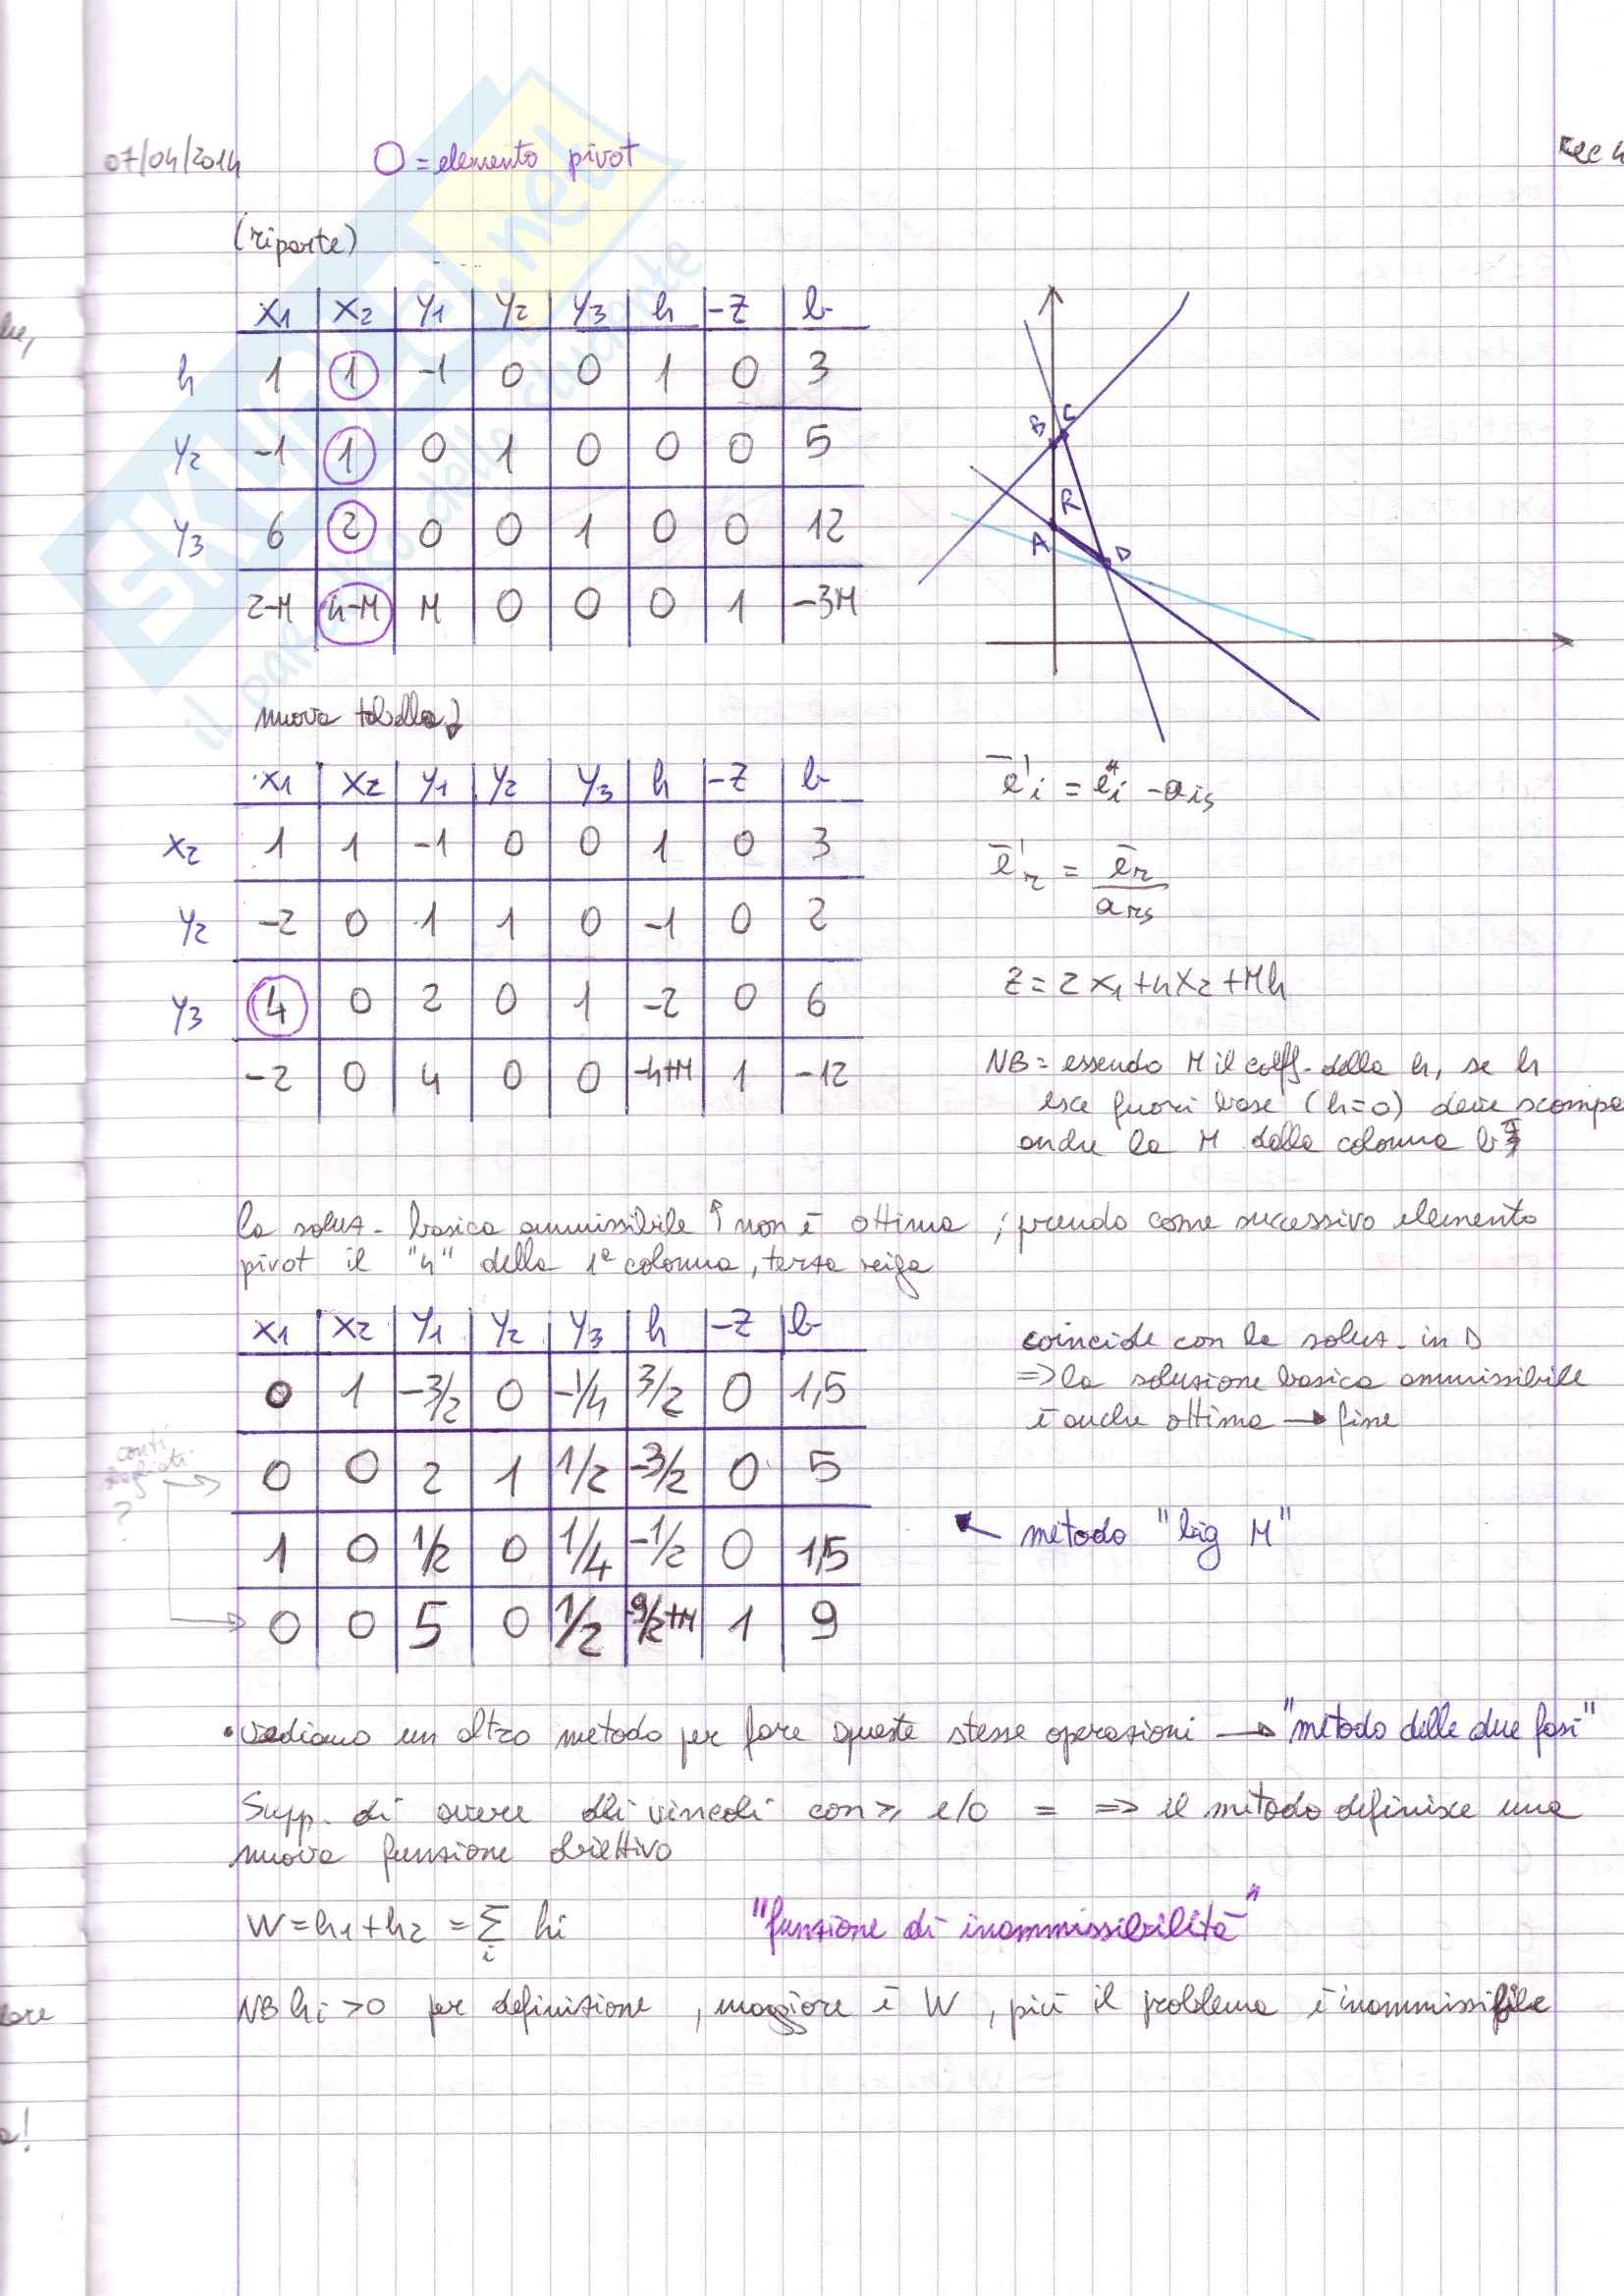 07/04/2014
O = elemento pivot
(riparte)
x1 x2 y1 y2 y3 h -z b
h 1 1 -1 0 0 1 0 3
y2 -1 1 0 1 0 0 0 5
y3 6 2 0 0 1 0 0 12
2-M 4-M M 0 0 0 1 -3M
B C
R
A D
nuova tabella
x1 x2 y1 y2 y3 h -z b
x2 1 1 -1 0 0 1 0 3
y2 -2 0 1 1 0 -1 0 2
y3 4 0 2 0 1 -2 0 6
-2 0 4 0 0 -4+M 1 -12
z = 2x1 + 4x2 + Mh
NB = essendo M il coeff. della h, se h
esce fuori base (h=0) deve scompa
anche la M dalla colonna b
la soluz. basica ammissibile ↑ non è ottima ; prendo come successivo elemento
pivot il "4" della 1ª colonna, terza riga
x1 x2 y1 y2 y3 h -z b
0 1 -3/2 0 -1/4 3/2 0 1,5
0 0 2 1 1/2 -3/2 0 5
1 0 1/2 0 1/4 -1/2 0 1,5
0 0 5 0 1/2 -9/2+M 1 9
conti
sbagliati
?
coincide con la soluz. in D
=> la soluzione basica ammissibile
è anche ottima → fine
← metodo "big M"
• vediamo un altro metodo per fare queste stesse operazioni → "metodo delle due fasi"
Supp. di avere dei vincoli con ≥ e/o = => il metodo definisce una
nuova funzione obiettivo
W = h1 + h2 = Σi hi "funzione di inammissibilità"
NB hi > 0 per definizione , maggiore è W , più il problema è inammissibile
SKUOLA.net
il paradiso dello studente